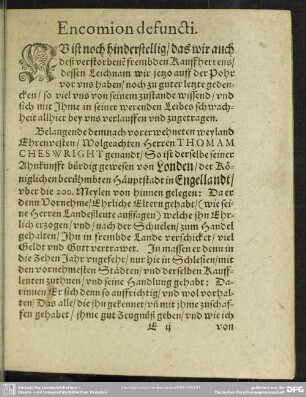 Encomion defuncti.
NUn ist noch hinderstellig / das wir auch
deß verstorbenē frembden Kauffherrens /
dessen Leichnam wir jetzo auff der Pohr
vor vns haben / noch zu guter letzte geden-
cken / so viel vns von seinem zustande wissend / vnd
sich mit Ihme in seiner werenden Leibes schwach-
heit allhier bey vns verlauffen vnd zugetragen.
Belangende demnach vorerwehneten weyland
Ehrenvesten / Wolgeachten Herren THOMAM
CHESWRIGHT genandt / So ist derselbe seiner
Ahnkunfft bürdig gewesen von Londen / der Kö-
niglichen berühmbten Häuptstadt in Engellandt /
vber die 200. Meylen von hinnen gelegen: Da er
denn Vornehme / Ehrliche Eltern gehabt / (wie sei-
ne Herren Landeßleute außsagen) welche ihn Ehr-
lich erzogen / vnd / nach der Schuelen / zum Handel
gehalten / Ihn in frembde Lande verschicket / viel
Geldt vnd Gutt vertrawet. In massen er denn in
die Zehen Jahr vngefehr / nur hie in Schlesien / mit
den vornehmesten Städten / vnd derselben Kauff-
leuten zuthuen / vnd seine Handlung gehabt: Da-
rinnen Er sich denn so auffrichtig / vnd wol vorhal-
ten / Das alle / die ihn gekennet / vñ mit ihme zuschaf-
fen gehabet / ihme gut Zeugnüß geben / vnd wie ich
E ij von